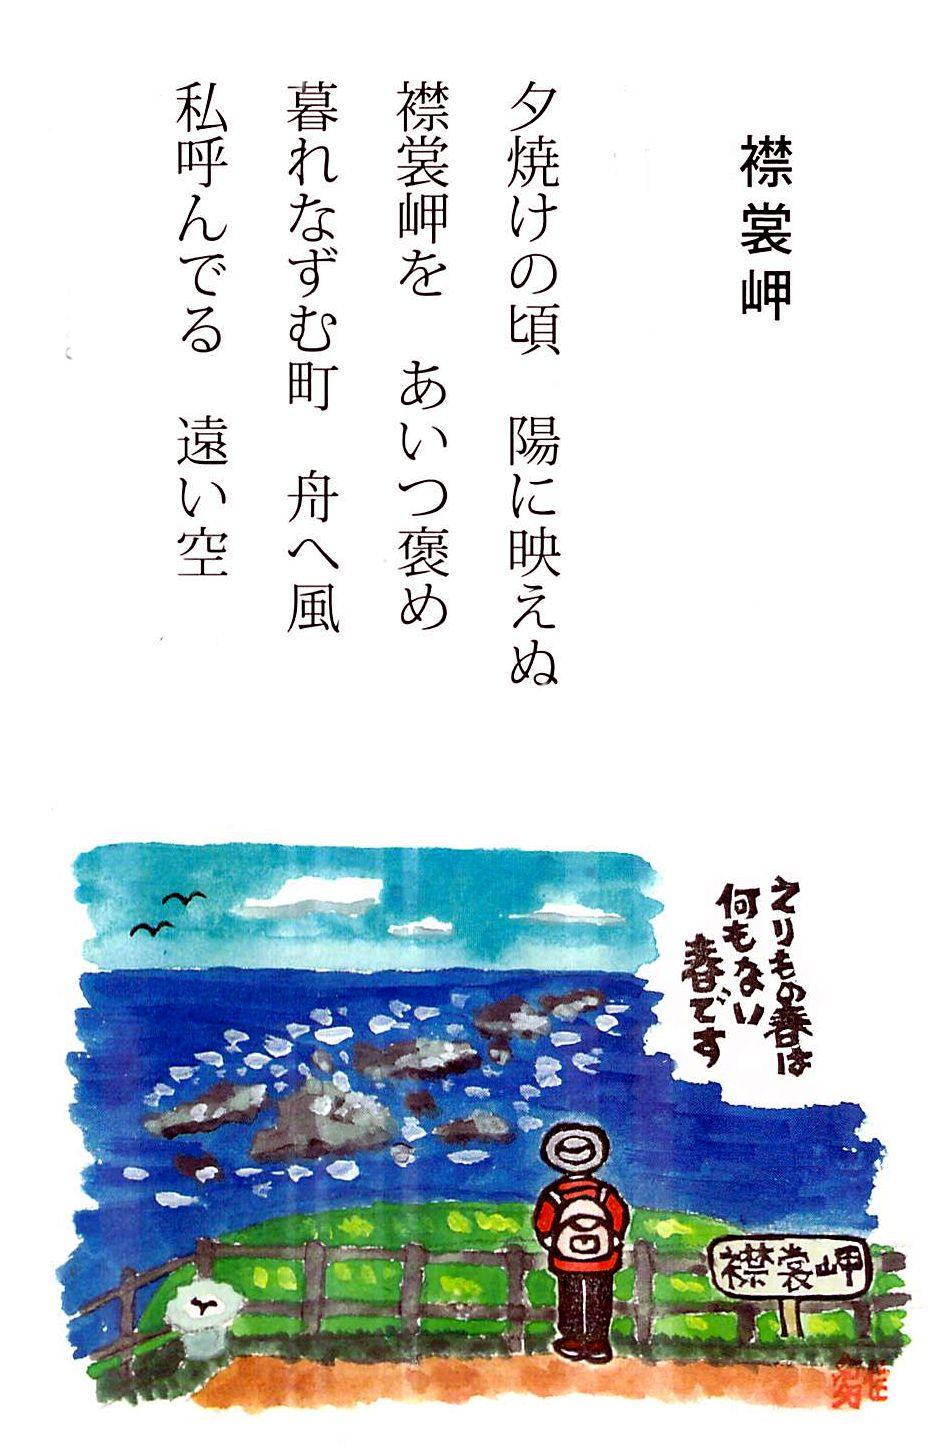 襟裳岬
夕焼けの頃　陽に映えぬ
襟裳岬を　あいつ褒め
暮れなずむ町　舟へ風
私呼んでる　遠い空
えりもの春は
何もない
春です
襟裳岬